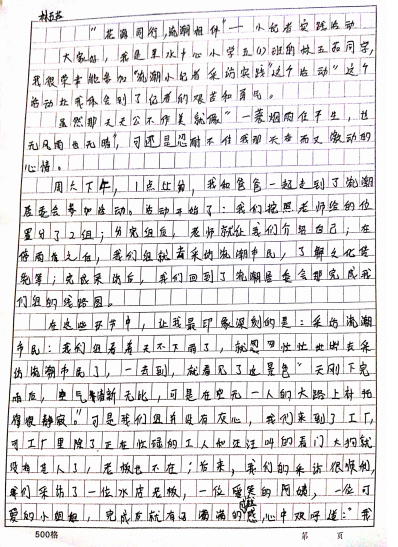 林五茹
“花海同行,流潮相伴”— 小记者实践活动
大家好,我是里水中心小学五(1)班的林五茹同学,
我很荣幸能参加“流潮小记者采访实践”这个活动”这个
活动让我体会到了记者的艰苦和育民。
虽然那天天公不作美就像“一蓑烟雨任平生,也
无风雨也无晴”,可还是忍耐不住我那天奇而又激动的
心情。
周六下午,1点廿分,我和爸爸一起走到了流潮
居委会参加活动。活动开始了:我们按照老师给的位
置分了2组;分完组后,老师就让我们介绍自己;在
停雨有之后,我们组就着采访流潮市民,了解文化背
景等;完成采访后,我们回到了流潮居委会那完成我
们组的线路图。
在这些环节中,让我最印象深刻的是:采访流潮
市民:我们组看着天不下雨了,就忙忙出去采
访流潮市民了,一去到,就看见了这景色“天刚下完
雨后,空气清新无比,可是在空无一人的大路上衬托
得很静寂。”可是我们组并没有灰心,我们来到了工厂,
可工厂里除了正在忙碌的工人和汪汪叫的看门大狗就
没有主人了,老板也不在;后来,我们的采访很顺利,
我们采访了一位水店老板,一位爱笑的阿姨,一位可
爱的小姐姐,完成后就有了满满的感,心中欢呼道:“我
500格
第 页